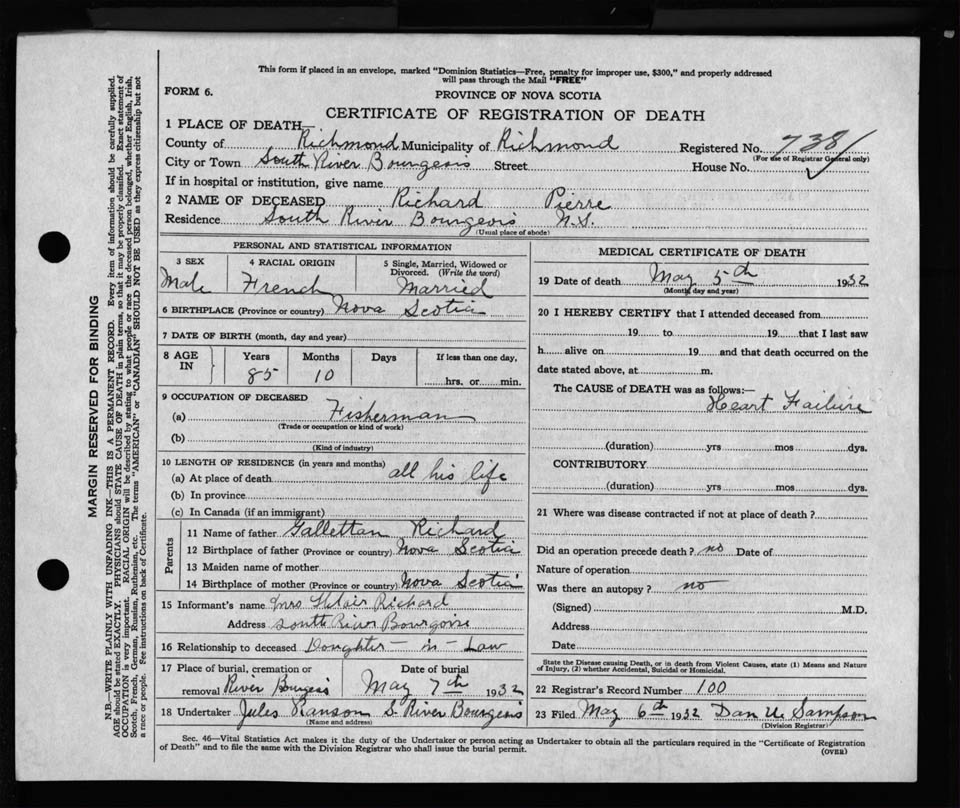 This form if placed in an envelope, marked "Dominion Statistics—Free, penalty for improper use, $300," and properly addressed
will pass through the Mail "FREE"
FORM 6.
PROVINCE OF NOVA SCOTIA
CERTIFICATE OF REGISTRATION OF DEATH
1 PLACE OF DEATH—
County of Richmond Municipality of Richmond Registered No. 738
(For use of Registrar General only)
City or Town South River Bourgeois Street House No.
If in hospital or institution, give name
2 NAME OF DECEASED Richard Pierre
Residence South River Bourgeois N.S.
(Usual place of abode)
PERSONAL AND STATISTICAL INFORMATION
3 SEX 4 RACIAL ORIGIN 5 Single, Married, Widowed or
Divorced. (Write the word)
Male French Married
6 BIRTHPLACE (Province or country) Nova Scotia
7 DATE OF BIRTH (month, day and year)
8 AGE IN Years Months Days If less than one day,
85 10 hrs. or min.
9 OCCUPATION OF DECEASED
(a) Fisherman
(Trade or occupation or kind of work)
(b)
(Kind of industry)
10 LENGTH OF RESIDENCE (in years and months)
(a) At place of death all his life
(b) In province
(c) In Canada (if an immigrant)
Parents
11 Name of father Richard
12 Birthplace of father (Province or country) Nova Scotia
13 Maiden name of mother
14 Birthplace of mother (Province or country) Nova Scotia
15 Informant's name Mrs Richard
Address South River Bourgoise
16 Relationship to deceased Doughter-in-Law
17 Place of burial, cremation or Date of burial
removal River Bourgeois May 7th 1932
18 Undertaker Jules Ranson S. River Bourgeois
(Name and address)
MEDICAL CERTIFICATE OF DEATH
19 Date of death May 5th 1932
(Month, day and year)
20 I HEREBY CERTIFY that I attended deceased from
19 to 19 that I last saw
h alive on 19 and that death occurred on the
date stated above, at m.
The CAUSE of DEATH was as follows:—
Heart Failure
(duration) yrs mos dys.
CONTRIBUTORY
(duration) yrs mos dys.
21 Where was disease contracted if not at place of death?
Did an operation precede death? no Date of
Nature of operation
Was there an autopsy? no
(Signed) M.D.
Address
Date
State the Disease causing Death, or in death from Violent Causes, state (1) Means and Nature
of Injury, (2) whether Accidental, Suicidal or Homicidal.
22 Registrar's Record Number 100
23 Filed May 6th 1932 Dan U. Sampson
(Division Registrar)
Sec. 46—Vital Statistics Act makes it the duty of the Undertaker or person acting as Undertaker to obtain all the particulars required in the "Certificate of Registration
of Death" and to file the same with the Division Registrar who shall issue the burial permit.
(OVER)
MARGIN RESERVED FOR BINDING
N.B.—WRITE PLAINLY WITH UNFADING INK—THIS IS A PERMANENT RECORD. Every item of information should be carefully supplied.
AGE should be stated EXACTLY. PHYSICIANS should STATE CAUSE OF DEATH in plain terms, so that it may be properly classified. Exact statement of
OCCUPATION is very important. RACIAL ORIGIN will be described by stating to what people or race the deceased person belonged, whether English, Irish,
Scotch, French, German, Russian, Ruthenian, etc. The terms "AMERICAN" or "CANADIAN" SHOULD NOT BE USED as they express citizenship but not
a race or people. See instructions on back of Certificate.